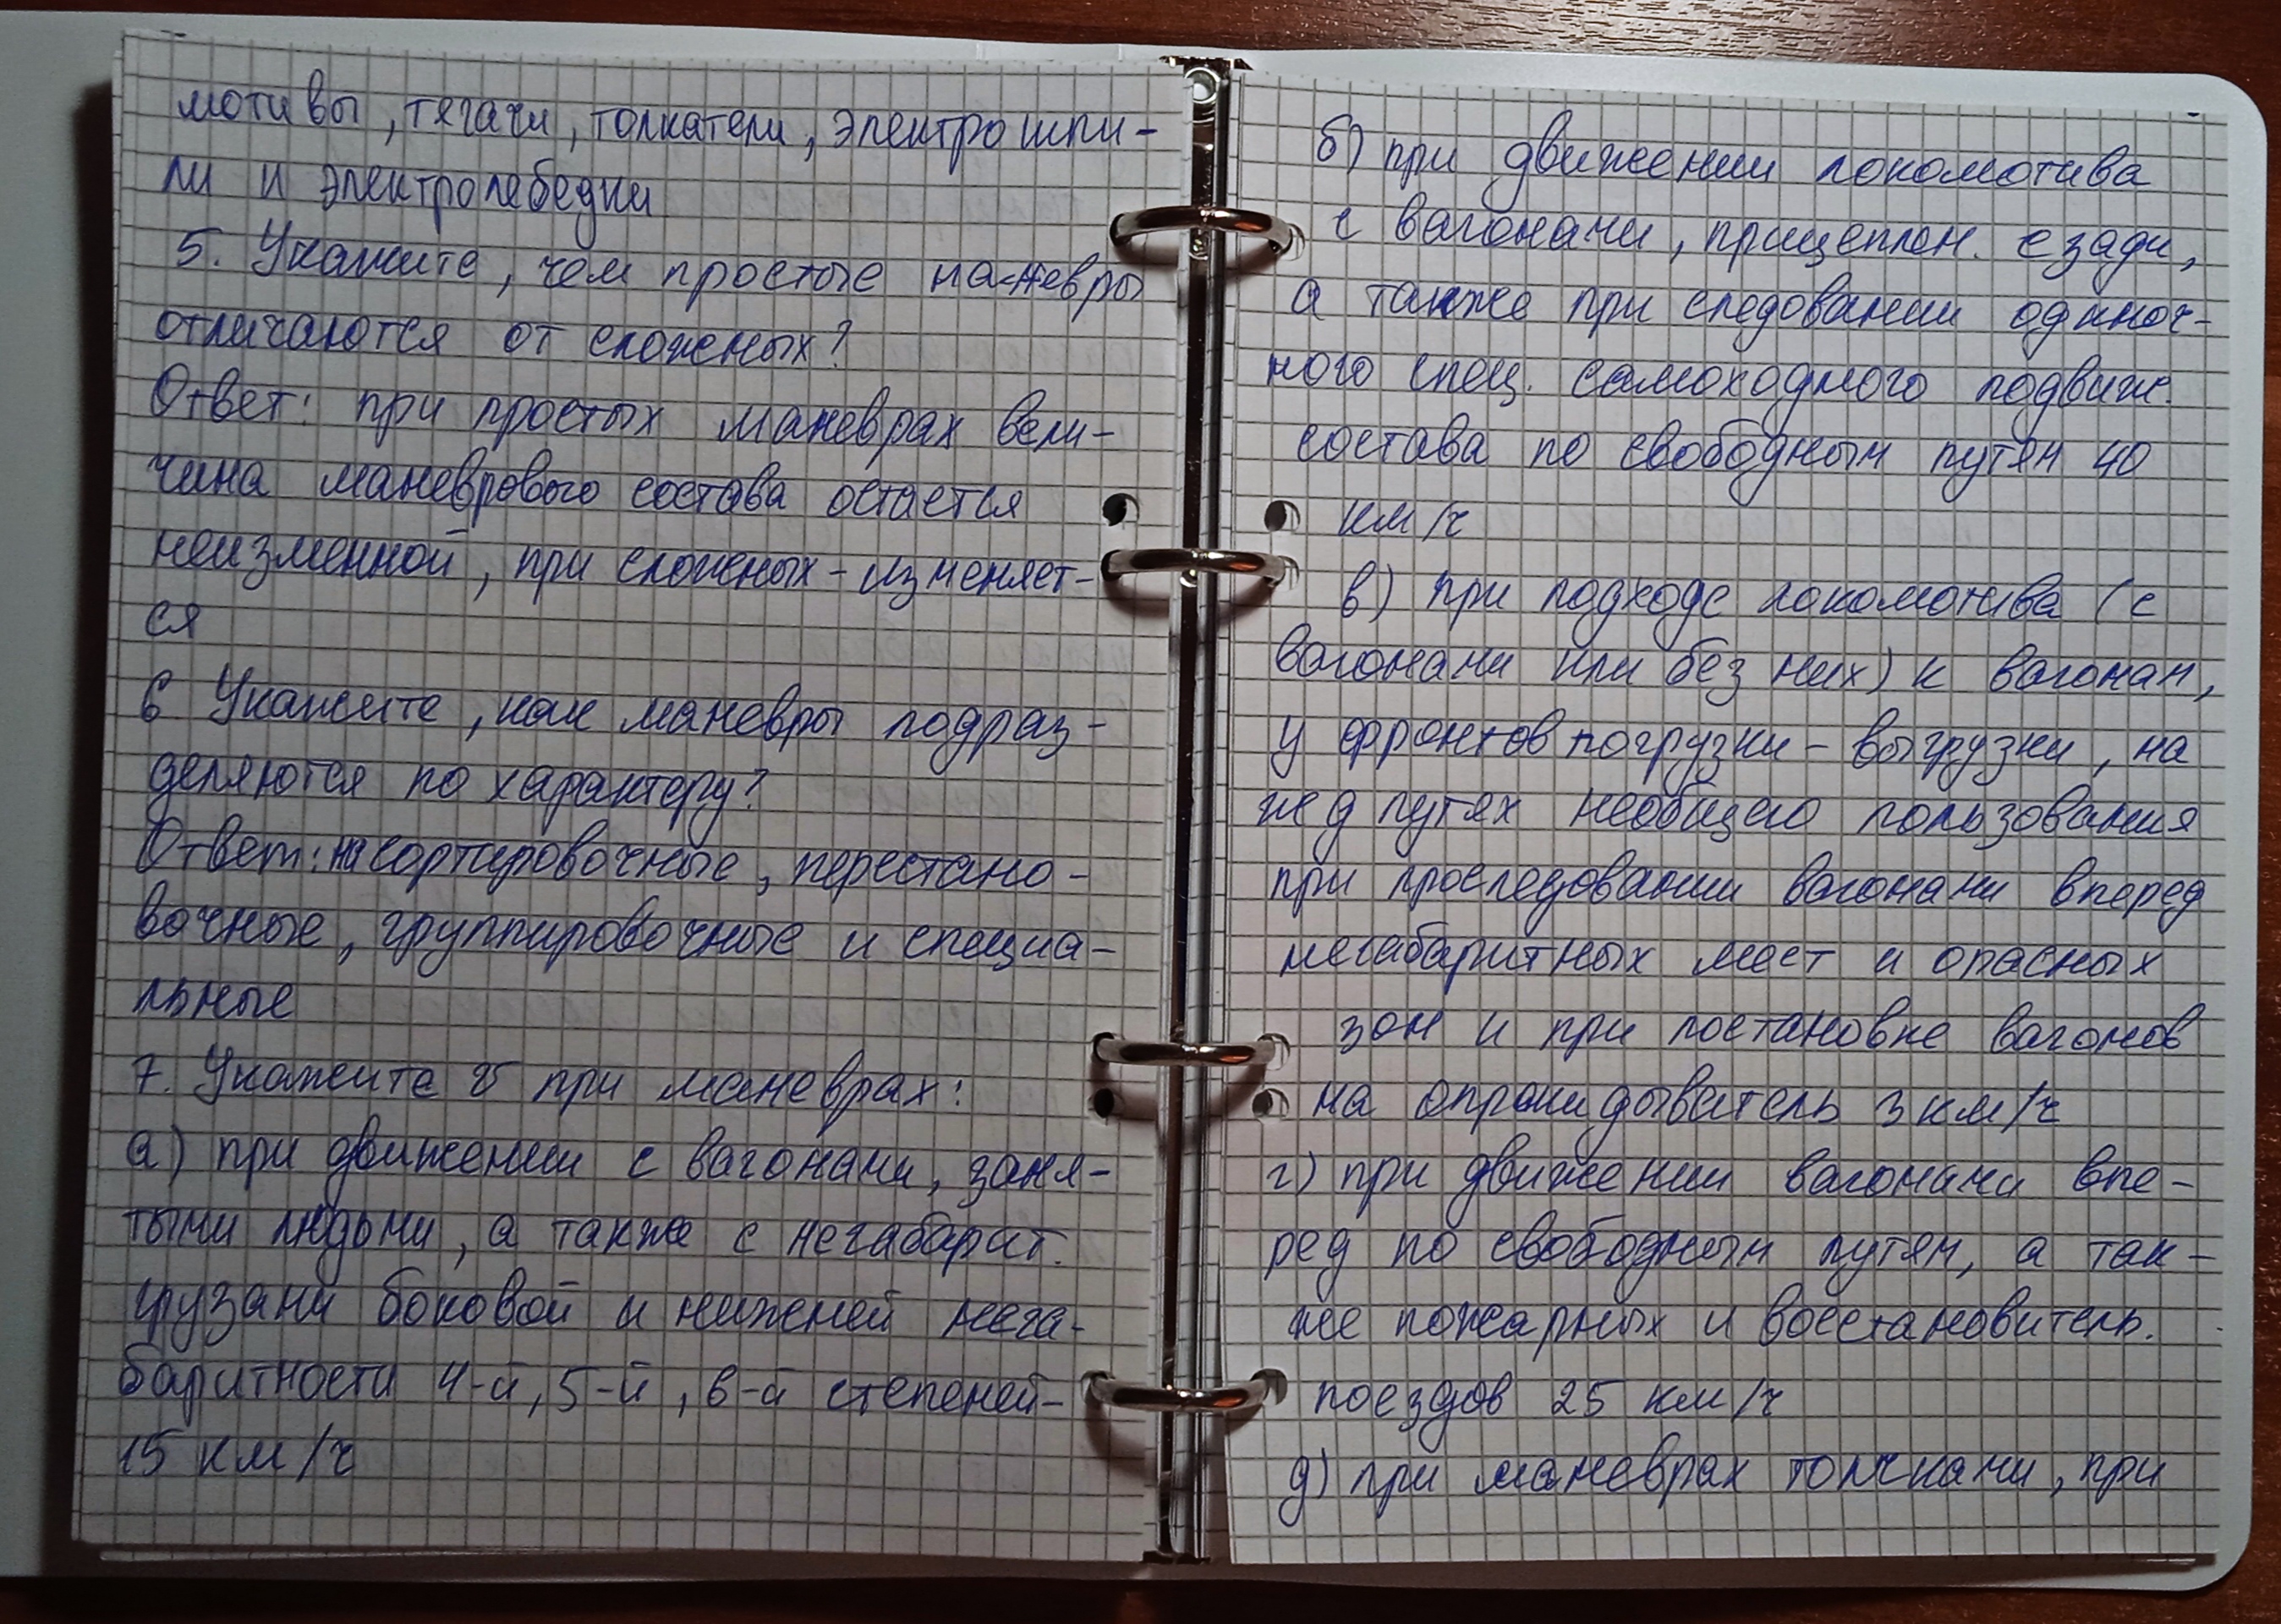 мотивы, тягачи, толкатели, электрошпи-
ли и электролебедки
5. Укажите, чем простые маневры
отличаются от сложеных?
Ответ: при простых маневрах вели-
чина маневрового состава остается
неизменной, при сложеных - изменяет-
ся
6 Укажите, как маневры подраз-
деляются по характеру?
Ответ: на сортировочные, перестано-
вочные, группировочные и специа-
льные
7. Укажите v при маневрах:
а) при движении с вагонами, заня-
тыми людьми, а также с негабарит.
грузами боковой и ниженей нега-
баритности 4-й, 5-й, 6-й степеней-
15 км/ч
б) при движении локомотива
с вагонами, прицеплен. сзади,
а также при следовании одиноч-
ного спец. самоходного подвиж.
состава по свободным путям 40
км/ч
в) при подходе локомотива (с
вагонами или без них) к вагонам,
у фронтов погрузки - выгрузки, на
жд путях необщего пользования
при проследовании вагонами вперед
негабаритных мест и опасных
зон и при постановке вагонов
на опрокидыватель 3 км/ч
г) при движении вагонами впе-
ред по свободным путям, а так-
же пожарных и восстановитель.
поездов 25 км/ч
д) при маневрах толчками, при